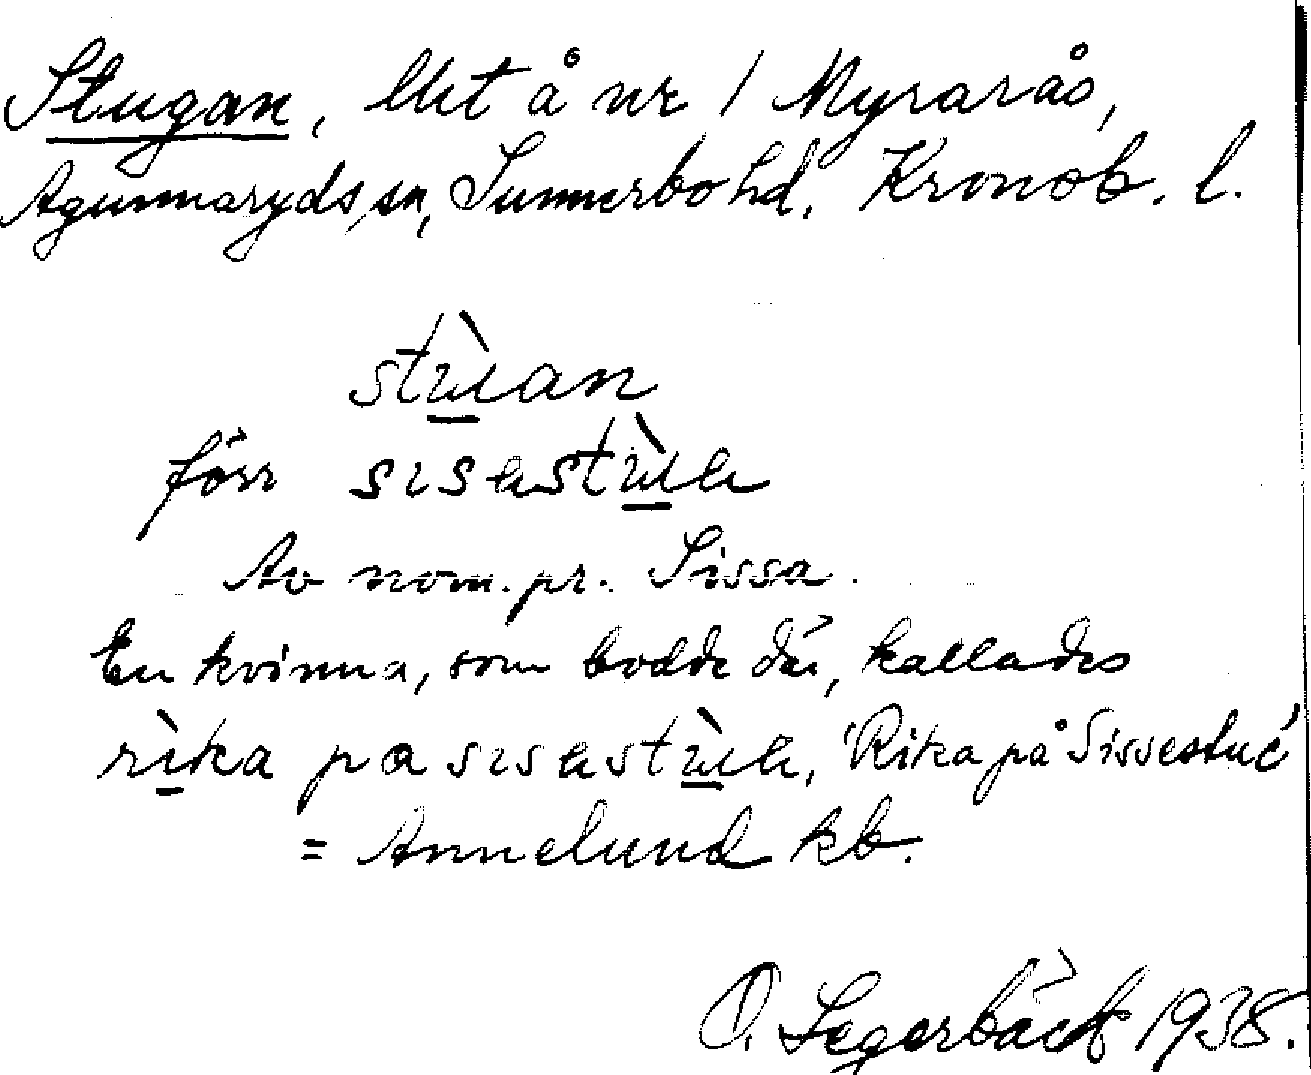 Stugan, lht å nr 1 Myrarås,
Agunnaryds sn, Sunnerbo hd, Kronob. l.
stùan
förr sisastùa
Av nom. pr. Sissa.
En kvinna, som bodde där, kallades
rìka pa sisastùa, 'Rika på Sissestue'
= Annelund kb.
O. Segerbäck 1938.